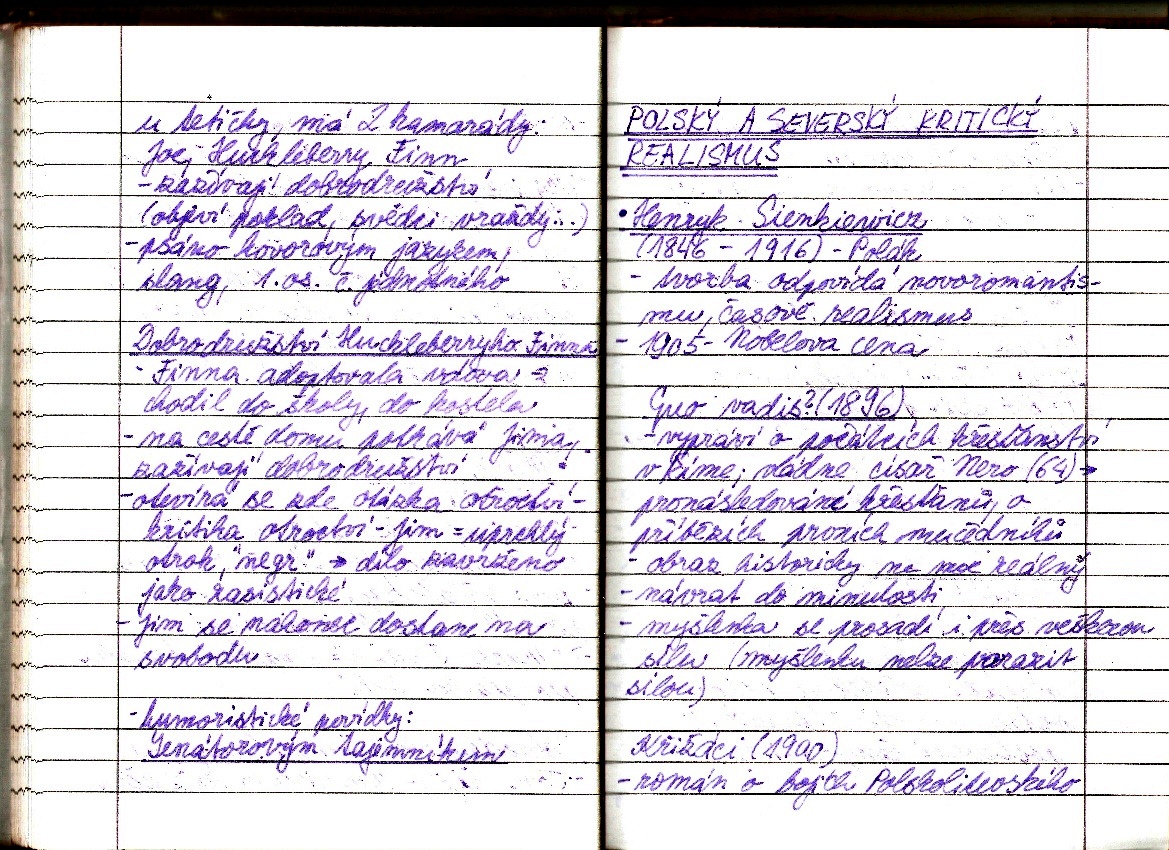 u tetičky, má 2 kamarády:
Joej Huckleberry Finn
- zažívají dobrodružství
(objeví poklad, svědci vraždy...)
- psáno hovorovým jazykem,
slang, 1. os. č. jednotného
Dobrodružství Huckleberryho Finna
- Finna adoptovala vdova →
chodil do školy, do kostela
- na cestě domu potkává Jima,
zažívají dobrodružství
- otevírá se zde otázka otroctví -
kritika otroctví - Jim = uprchlý
otrok, "negr" → dílo zavrženo
jako rasistické
- Jim se nakonec dostane na
svobodu
- humoristické povídky:
Senátorovým tajemníkem
POLSKÝ A SEVERSKÝ KRITICKÝ
REALISMUS
• Henryk Sienkiewicz
(1846 - 1916) - Polák
- tvorba odpovídá novoromantis-
mu, časově realismus
- 1905 - Nobelova cena
Quo vadis? (1896)
- vypráví o počátcích křesťanství
v Římě; vládne císař Nero (64) →
pronásledování křesťanů, o
příbězích prvních mučedníků
- obraz historicky ne moc reálný
- návrat do minulosti
- myšlenka se prosadí i přes veškerou
sílu (myšlenku nelze porazit
silou)
Křižáci (1900)
- román o bojích Polskolitevského